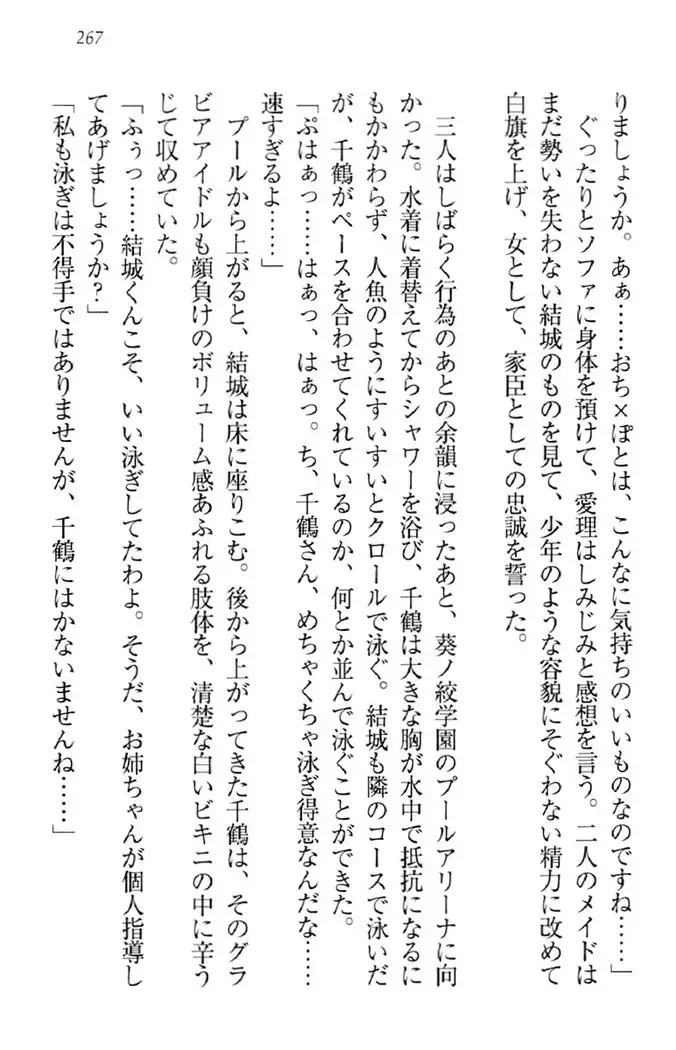 267
りましょうか。あぁ……おち×ぽとは、こんなに気持ちのいいものなのですね……」
ぐったりとソファに身体を預けて、愛理はしみじみと感想を言う。二人のメイドは
まだ勢いを失わない結城のものを見て、少年のような容貌にそぐわない精力に改めて
白旗を上げ、女として、家臣としての忠誠を誓った。
三人はしばらく行為のあとの余韻に浸ったあと、葵ノ絞学園のプールアリーナに向
かった。水着に着替えてからシャワーを浴び、千鶴は大きな胸が水中で抵抗になるに
もかかわらず、人魚のようにすいすいとクロールで泳ぐ。結城も隣のコースで泳いだ
が、千鶴がペースを合わせてくれているのか、何とか並んで泳ぐことができた。
「ぷはぁっ……はぁっ、はぁっ。ち、千鶴さん、めちゃくちゃ泳ぎ得意なんだな……
速すぎるよ……」
プールから上がると、結城は床に座りこむ。後から上がってきた千鶴は、そのグラ
ビアアイドルも顔負けのボリューム感あふれる肢体を、清楚な白いビキニの中に辛う
じて収めていた。
「ふぅっ……結城くんこそ、いい泳ぎしてたわよ。そうだ、お姉ちゃんが個人指導し
てあげましょうか？」
「私も泳ぎは不得手ではありませんが、千鶴にはかないませんね……」